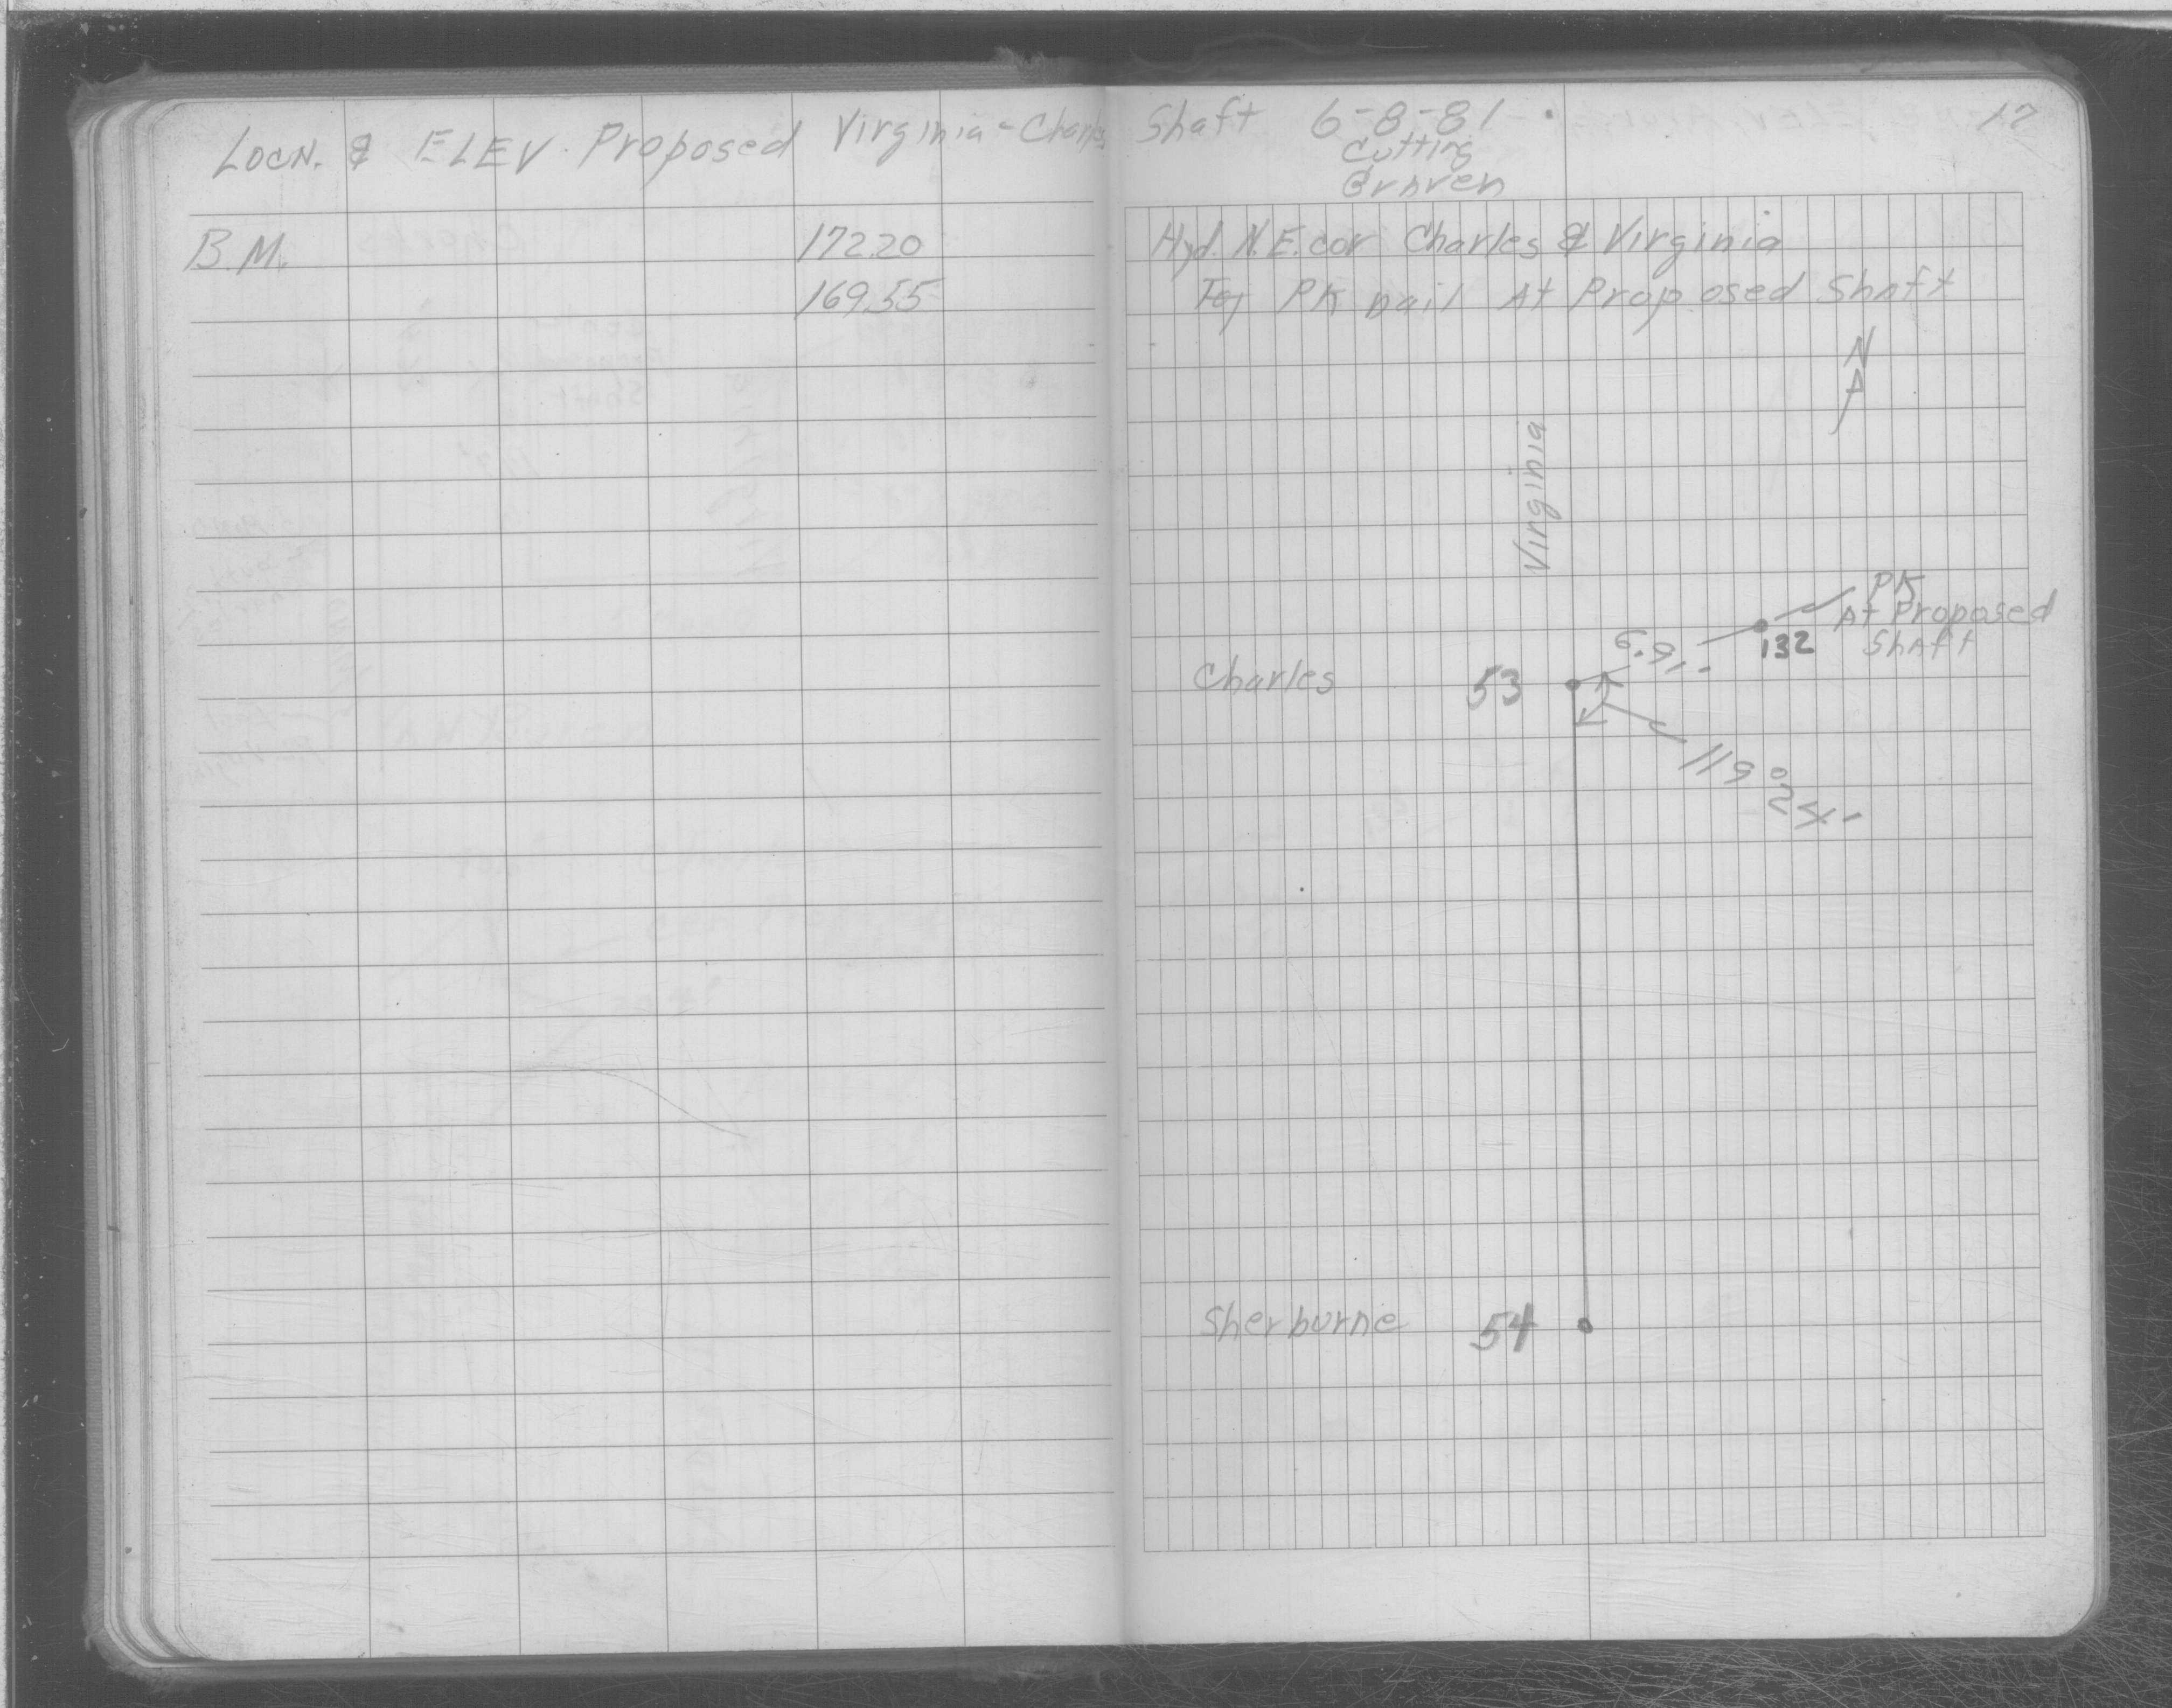 Locn. & ELEV. Proposed Virginia-Charles Shaft 6-8-81
17
Cutting
B.M. 172.20 Hyd. N.E. cor Charles & Virginia
169.55 PK nail At Proposed Shaft
N
Virginia
PK
At Proposed
Shaft
132
Charles 53
119° 24'
Sherburne 54